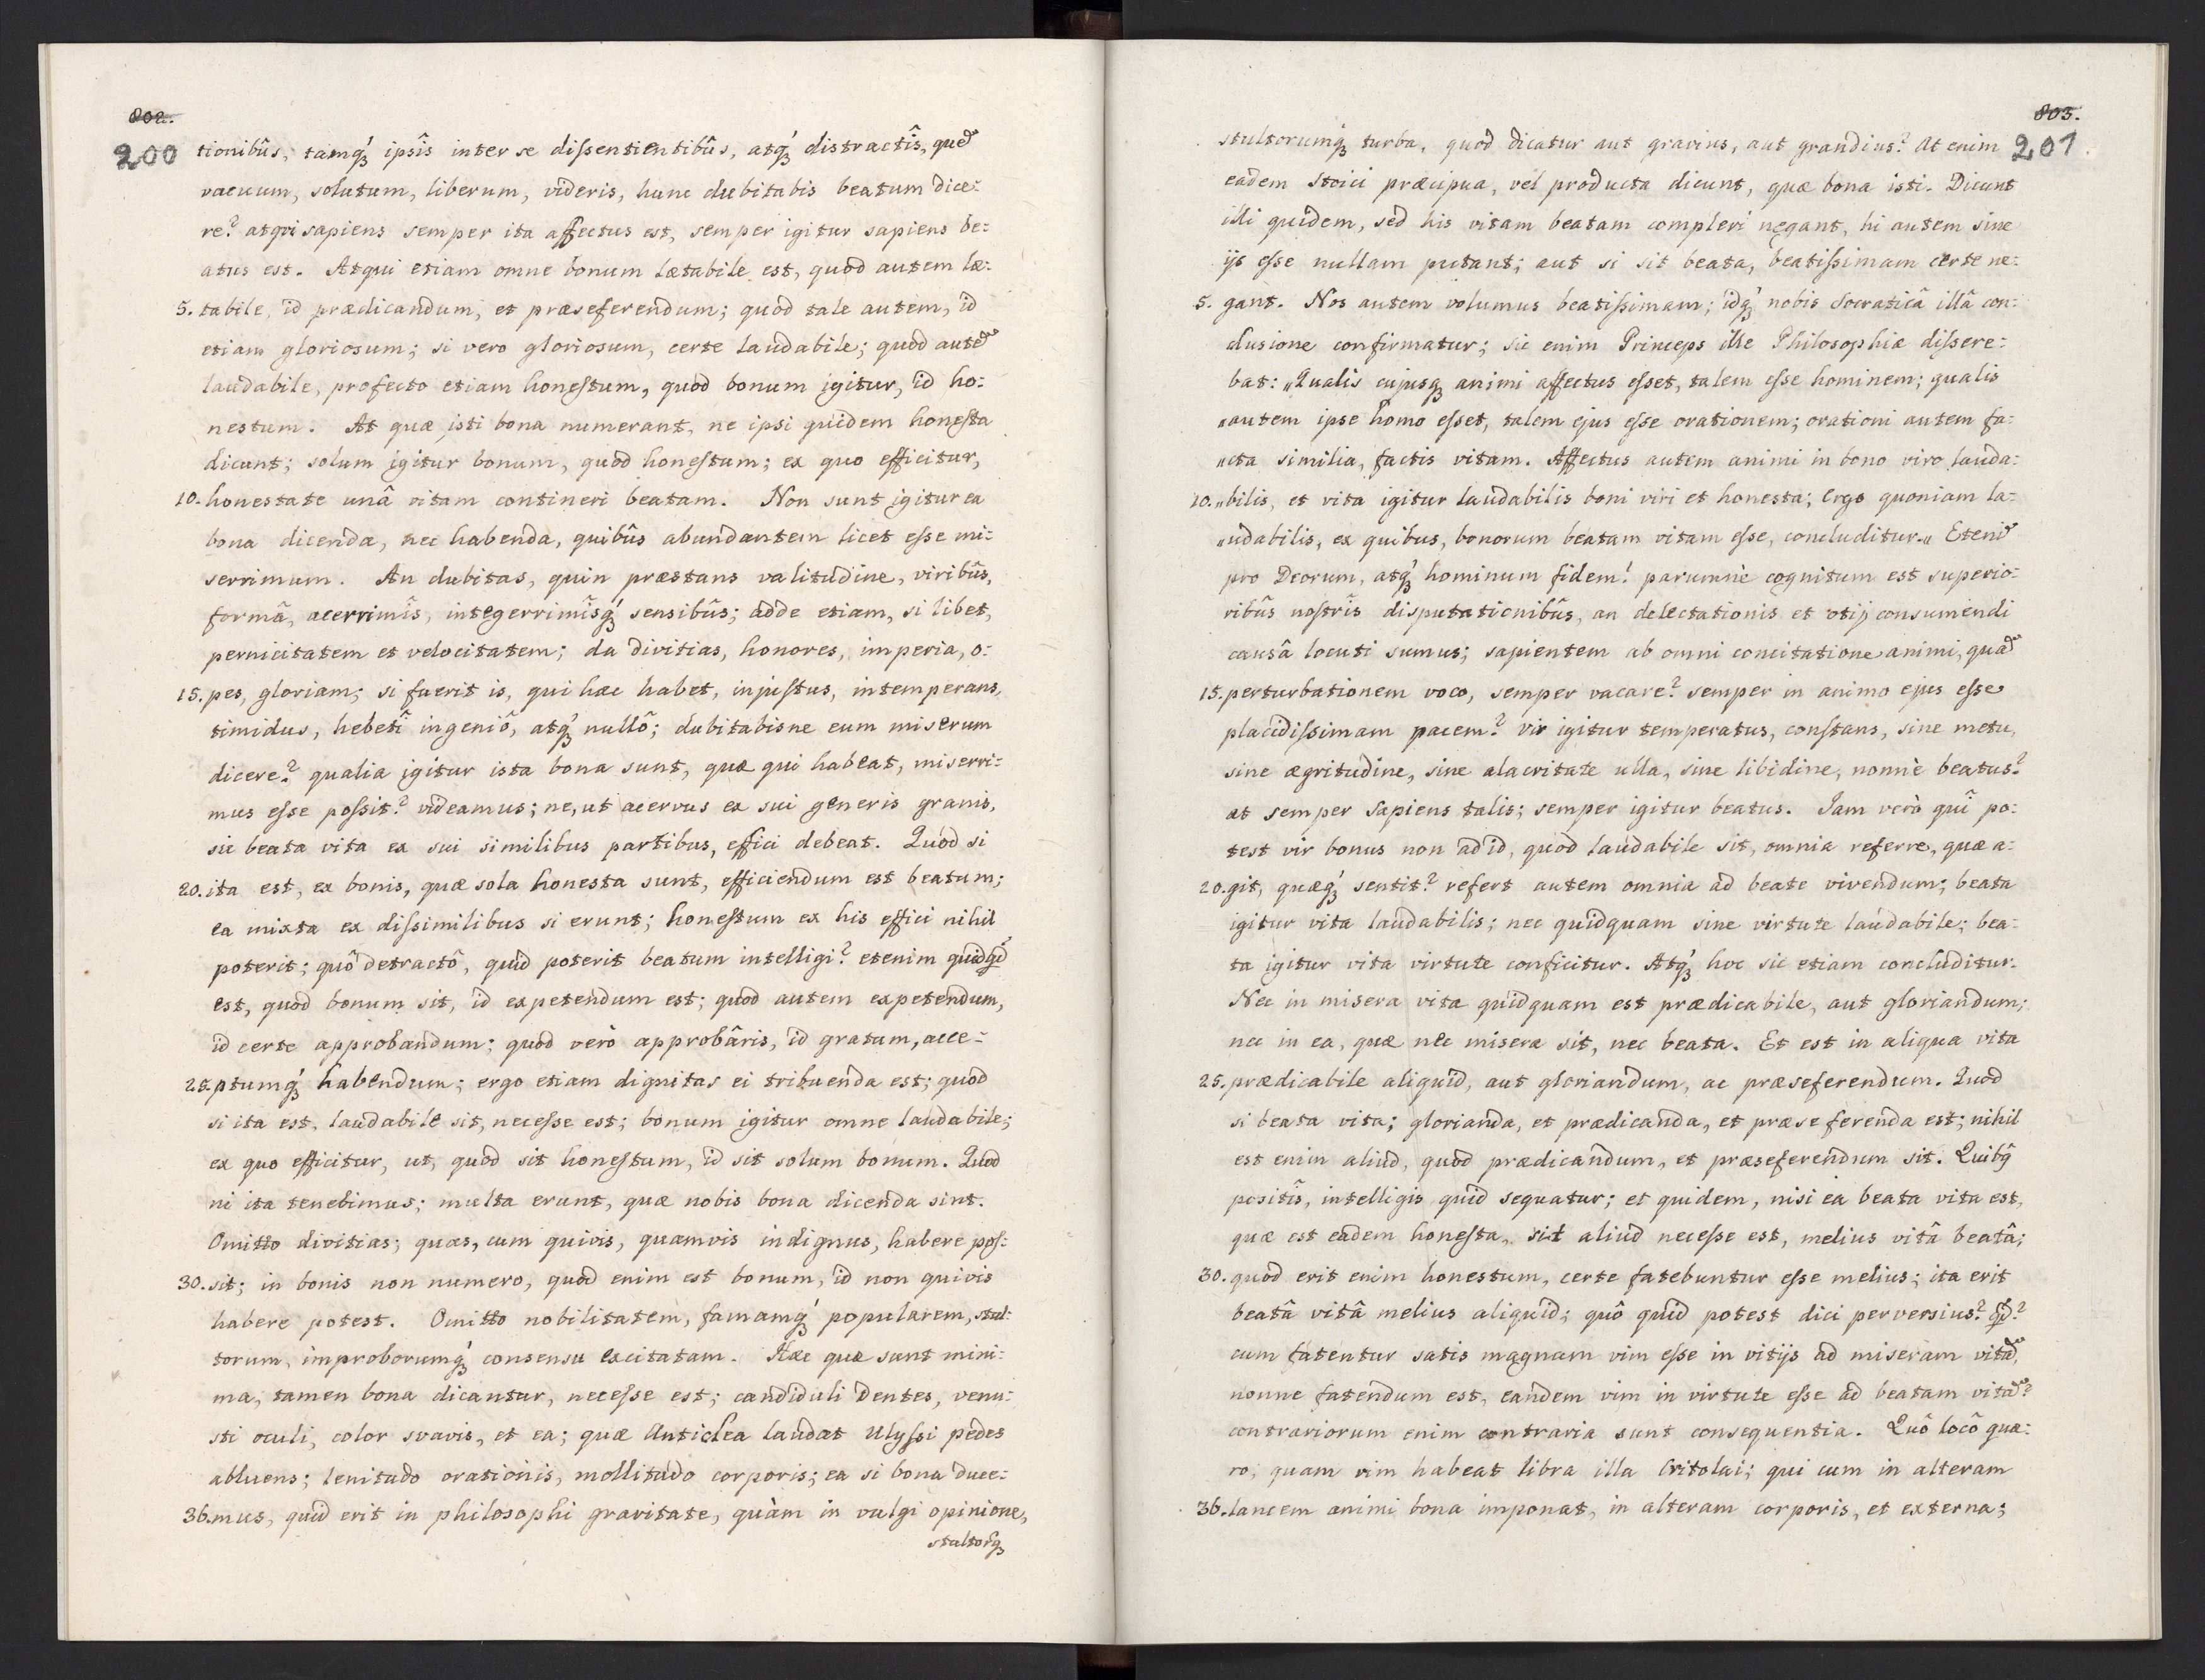 802.
200
tionibûs, tamq́ꝫ ipsîs inter se diſsentientibûs, atq́ꝫ distractîs, quẽ
vacuum, solutum, liberum, videris, hunc dubitabis beatum dice:
re? atqvi sapiens semper ita affectus est, semper igitur sapiens be:
atus est. Atqui etiam omne bonum lætabile est, quod autem læ:
5. tabile, id prædicandum, et præseferendum; quod tale autem, id
etiam gloriosum; si vero gloriosum, certe laudabile; quod autẽ
laudabile, profecto etiam honeſtum, quod bonum igitur, id ho:
nestum. At quæ isti bona numerant, ne ipsi quidem honeſta
dicunt; solum igitur bonum, quod honeſtum; ex quo efficitur,
10. honestate unâ vitam contineri beatam. Non sunt igitur ea
bona dicenda, nec habenda, quibûs abundantem licet eſse mi:
serrimum. An dubitas, quin præstans valitudine, viribûs,
formâ, acerrimîs, integerrimîsq́ꝫ sensibûs; adde etiam, si libet,
pernicitatem et velocitatem; da divitias, honores, imperia, o:
15. pes, gloriam; si fuerit is, qui hæc habet, injuſtus, intemperans,
timidus, hebetî ingeniô, atq́ꝫ nullô; dubitabisne eum miserum
dicere? qualia igitur ista bona sunt, quæ qui habeat, miserri:
mus eſse poſsit? videamus; ne, ut acervus ex sui generis granis,
sic beata vita ex sui similibus partibus, effici debeat. Quod si
20. ita est, ex bonis, quæ sola honesta sunt, efficiendum est beatum;
ea mixta ex diſsimilibus si erunt; honeſtum ex his effici nihil
poterit; quô detractô, quid poterit beatum intelligi? etenim quidqd
est, quod bonum sit, id expetendum est; quod autem expetendum,
id certe approbandum; quod verò approbâris, id gratum, acce:
25. ptumq́ꝫ habendum; ergo etiam dignitas ei tribuenda est; quod
si ita est, laudabile sit, neceſse est; bonum igitur omne laudabile;
ex quo efficitur, ut, quod sit honeſtum, id sit solum bonum. Quod
ni ita tenebimus; multa erunt, quæ nobis bona dicenda sint.
Omitto divitias; quas, cum quivis, quamvis indignus, habere poſ:
30. sit; in bonis non numero, quod enim est bonum, id non quivis
habere potest. Omitto nobilitatem, famamq́ꝫ popularem, stul:
torum, improborumq́ꝫ consensu excitatam. Hæc quæ sunt mini:
ma, tamen bona dicantur, neceſse est; candiduli dentes, venu:
sti oculi, color svavis, et ea; quæ Anticlea laudat Ulyſsi pedes
abluens; lenitudo orationis, mollitudo corporis; ea si bona duce:
36. mus, quid erit in philosophi gravitate, quàm in vulgi opinione,
stultorq́ꝫ
803.
201
stultorumq́ꝫ turba, quod dicatur aut gravius, aut grandius? At enim
eadem Stoici præcipua, vel producta dicunt, quæ bona isti. Dicunt
illi quidem, sed his vitam beatam compleri negant, hi autem sine
ijs eſse nullam putant; aut si sit beata, beatiſsimam certe ne:
5. gant. Nos autem volumus beatiſsimam; idq́ꝫ nobis Socraticâ illâ con:
clusione confirmatur; sic enim Princeps ille Philosophiæ diſsere:
bat: „Qualis cujusqꝫ animi affectus eſset, talem eſse hominem; qualis
„autem ipse homo eſset, talem ejus eſse orationem; orationi autem fa:
„cta similia, factis vitam. Affectus autem animi in bono viro lauda:
10. „bilis, et vita igitur laudabilis boni viri et honesta; Ergo quoniam la:
„udabilis, ex quibus, bonorum beatam vitam eſse, concluditur.„ Etenĩ
pro Deorum, atq́ꝫ hominum fidem! parumnè cognitum est superio:
ribûs noſtrîs disputationibûs, an delectationis et otij consumendi
causâ locuti sumus; sapientem ab omni concitatione animi, quã
15. perturbationem voco, semper vacare? semper in animo ejus eſse
placidiſsimam pacem? vir igitur temperatus, conſtans, sine metu,
sine ægritudine, sine alacritate ulla, sine libidine, nonnè beatus?
at semper Sapiens talis; semper igitur beatus. Jam verò quî po:
test vir bonus non ad id, quod laudabile sit, omnia referre, quæ a:
20. git, quæq́ꝫ sentit? refert autem omnia ad beate vivendum; beata
igitur vita laudabilis; nec quidquam sine virtute laudabile; bea:
ta igitur vita virtute conficitur. Atq́ꝫ hoc sic etiam concluditur.
Nec in misera vita quidquam est prædicabile, aut gloriandum;
nec in ea, quæ nec misera sit, nec beata. Et est in aliqua vita
25. prædicabile aliquid, aut gloriandum, ac præseferendum. Quod
si beata vita; glorianda, et prædicanda, et præseferenda est; nihil
est enim aliud, quod prædicandum, et præseferendum sit. Quibq́
positîs, intelligis quid sequatur; et quidem, nisi ea beata vita est,
quæ est eadem honeſta, sit aliud neceſse est, melius vitâ beatâ;
30. quod erit enim honestum, certe fatebuntur eſse melius; ita erit
beatâ vitâ melius aliquid; quô quid potest dici perversius? qd?
cum fatentur satis magnam vim eſse in vitijs ad miseram vitã,
nonne fatendum est, eandem vim in virtute eſse ad beatam vitã?
contrariorum enim contraria sunt consequentia. Quô locô quæ:
ro, quam vim habeat libra illa Critolai; qui cum in alteram
36. lancem animi bona imponat, in alteram corporis, et externa;